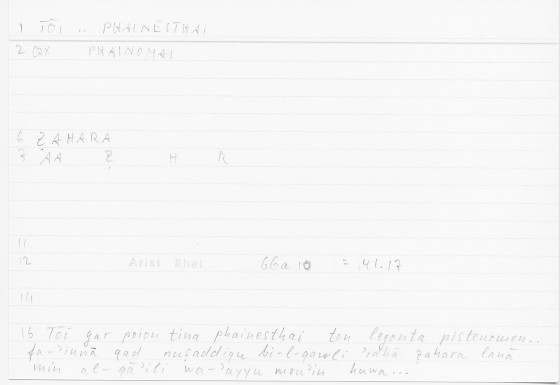 1 TŌI .. PHAINESTHAI
2 QX PHAINOMAI
6 ẒAHARA
7 AA Ẓ H R
11
12 Arist Rhet 66a 10 = 41.17
111
15 Tōi gar poion tina phainesthai ton legonta pisteuomen..
fa-ʾinnā qad nuṣaddiqu bi-l-qauli ʾiḏā ẓahara lanā
min al-qāʾili wa-ʾayyu mruʾin huwa...